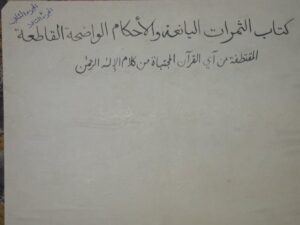 كتاب الثمرات اليانعة والأحكام الواضحة القاطعة
المقتطفة من آي القرآن المجتباة من كلام الإله الرحمن
الجزء الثاني